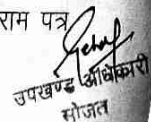 राम पत्र
उपखण्ड अधिकारी
सोजत